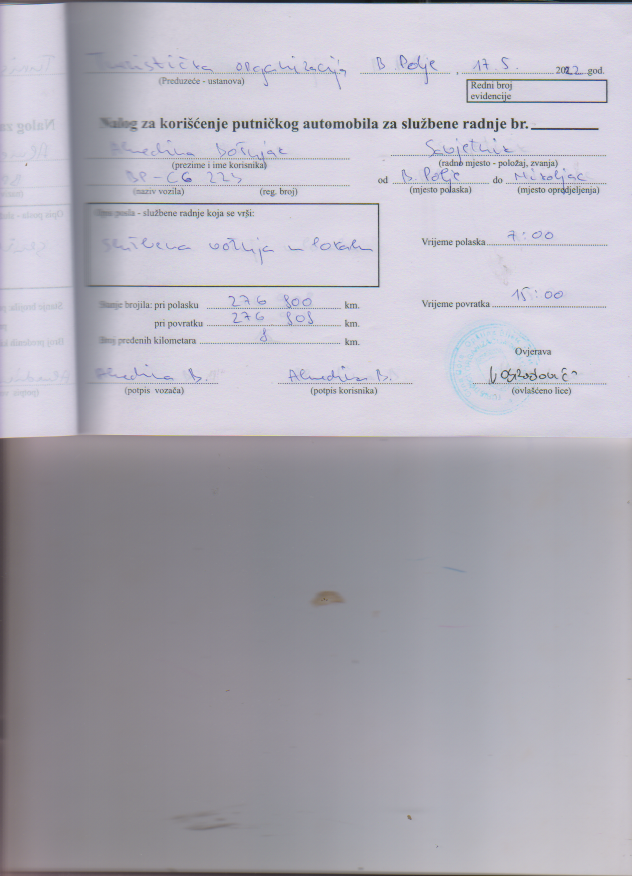 Turistička organizacija B. Polje, 17.5. 2022 god.
(Preduzeće - ustanova)
Redni broj
evidencije
Nalog za korišćenje putničkog automobila za službene radnje br.
Almedina Bošnjak Savjetnik
(prezime i ime korisnika) (radno mjesto - položaj, zvanja)
BP-CG 223 od B. Polje do Nikoljac
(naziv vozila) (reg. broj) (mjesto polaska) (mjesto opredjeljenja)
Opis posla - službene radnje koja se vrši:
Službena vožnja u lokalu
Vrijeme polaska 7:00
Stanje brojila: pri polasku 276 800 km. Vrijeme povratka 15:00
pri povratku 276 808 km.
Broj pređenih kilometara 8 km.
Ovjerava
Almedina B. Almedina B.
(potpis vozača) (potpis korisnika) (ovlašćeno lice)